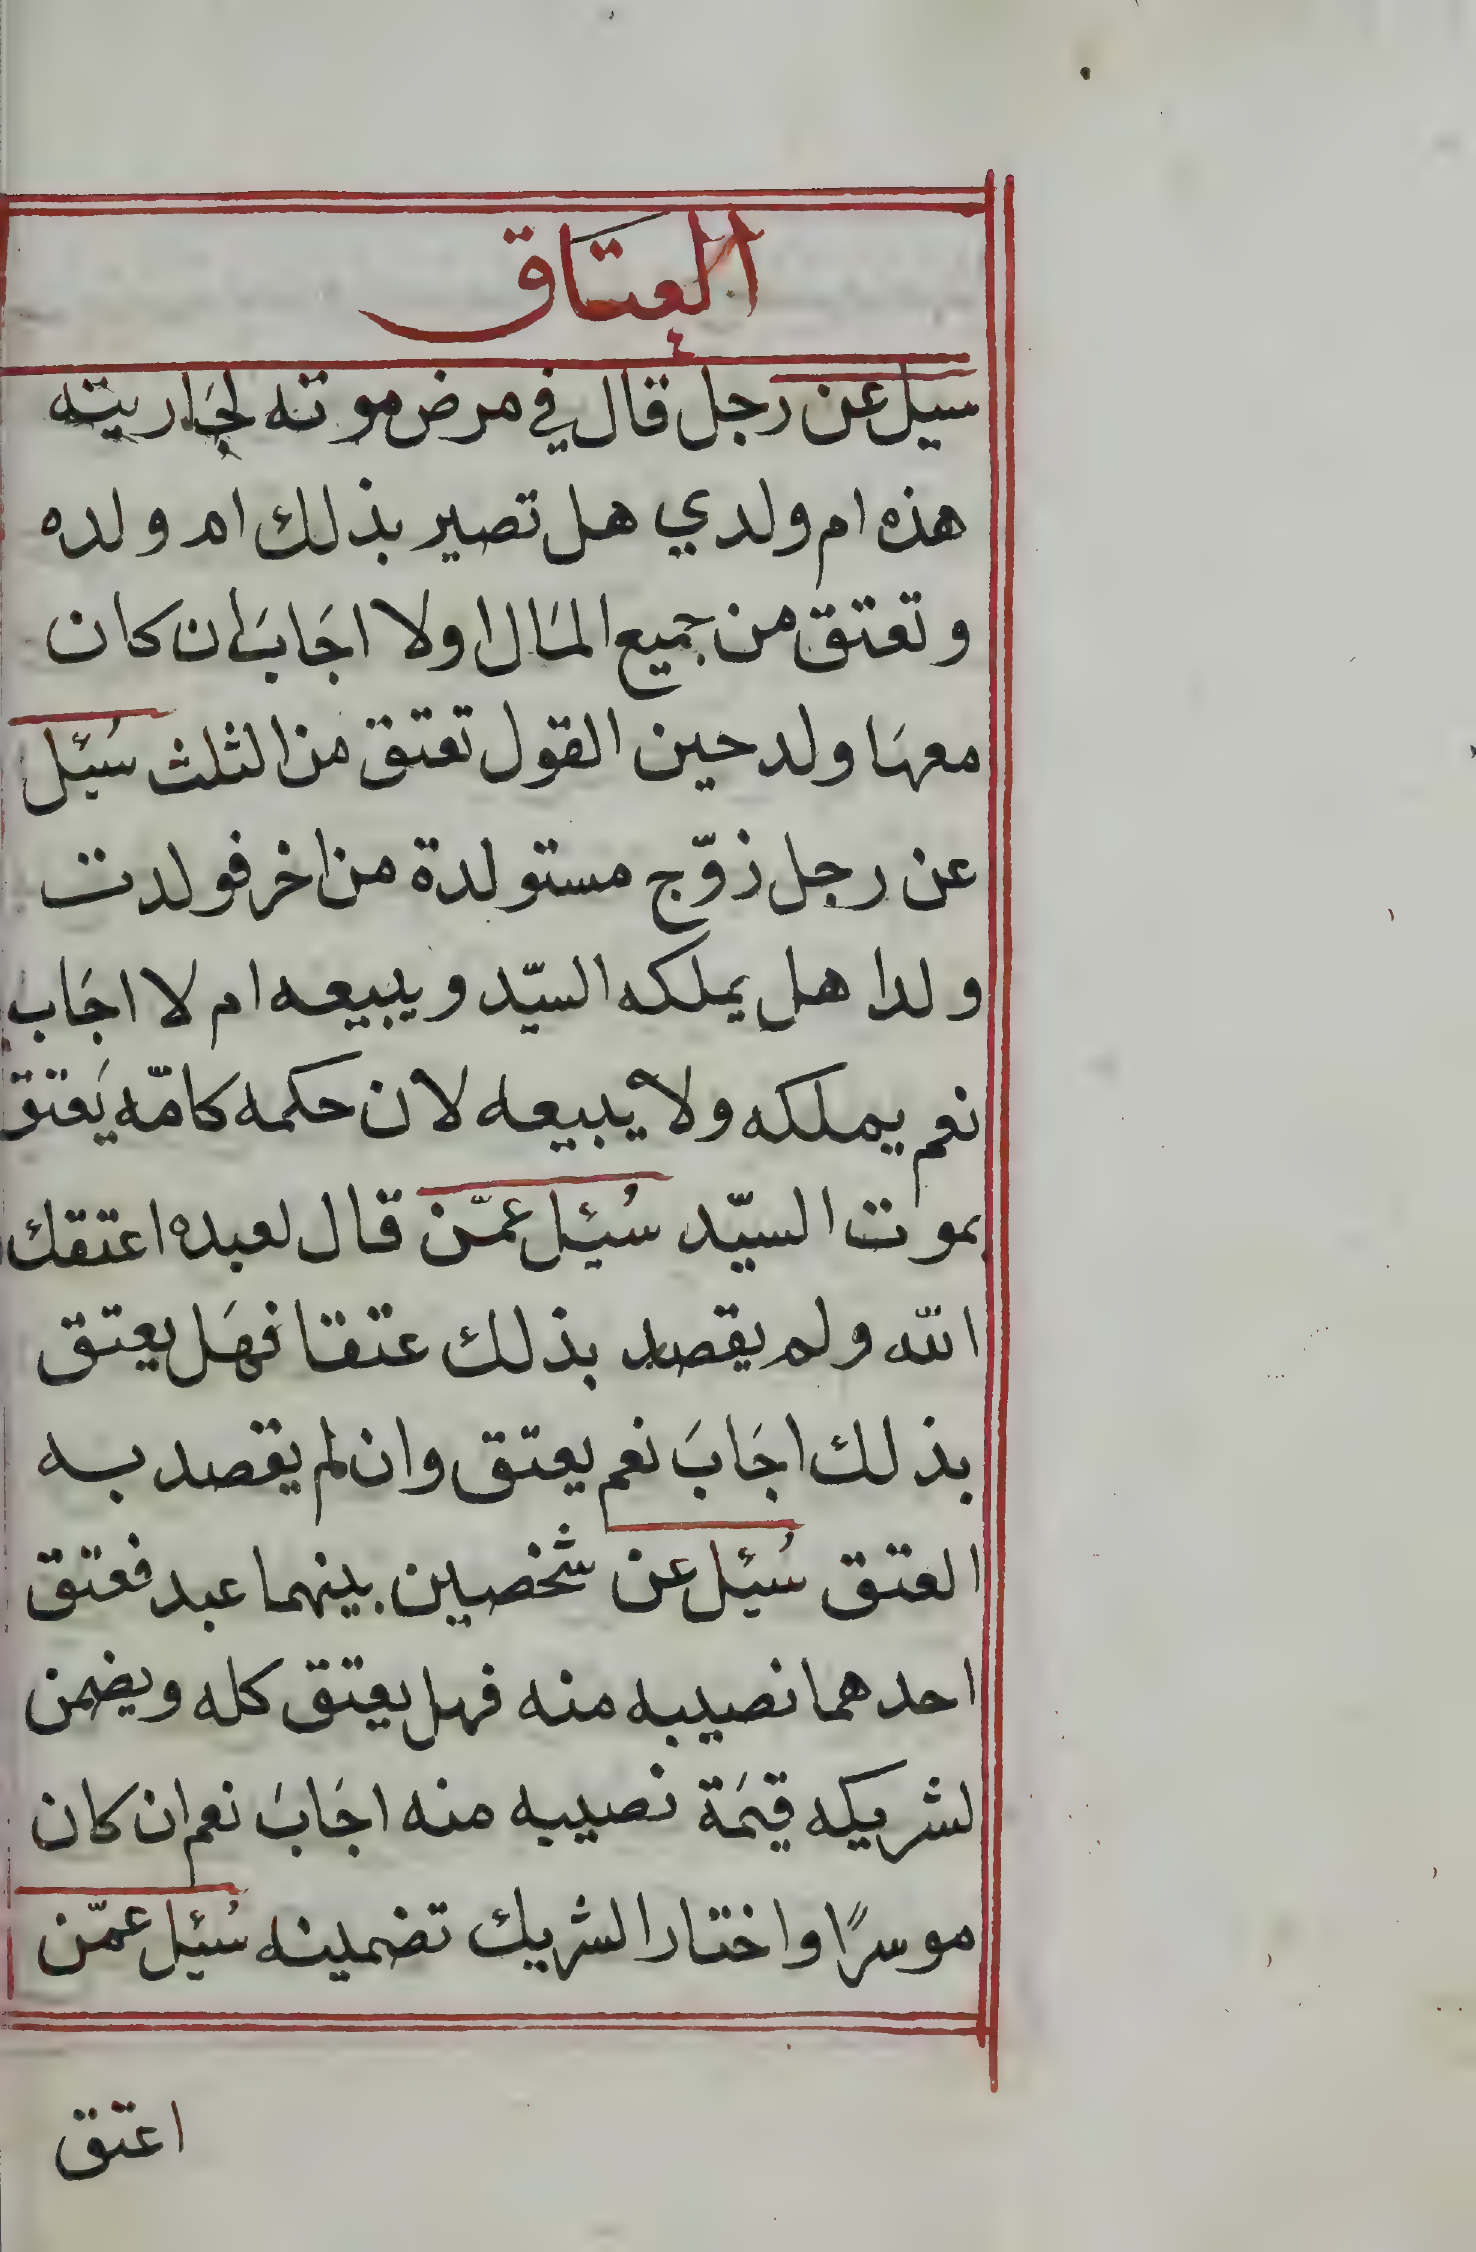 العتاق
سيل عن رجل قال في مرض موته لجَاريته
هذه ام ولدي هل تصير بذلك ام ولده
وتعتق من جميع المَال اولا اجَابَ ان كان
معهَا ولد حين القول تعتق من الثلث سُئِل
عن رجل زوّج مستولدة من اخر فولدت
ولدا هل يملكه السيّد ويبيعه ام لا اجَاب
نعم يملكه ولا يبيعه لان حكمه كامّه يَعتق
بموت السيّد سُئِل عمّن قال لعبده اعتقك
الله ولم يقصد بذلك عتقا فهَل يعتق
بذلك اجَابَ نعم يعتق وان لم يقصد به
العتق سُئِل عن شخصين بينهما عبد فعتق
احدهما نصيبه منه فهل يعتق كله ويضمن
لشريكه قيمَة نصيبه منه اجَابَ نعم ان كان
موسرًا واختار الشريك تضمينه سُئِل عمّن
اعتق